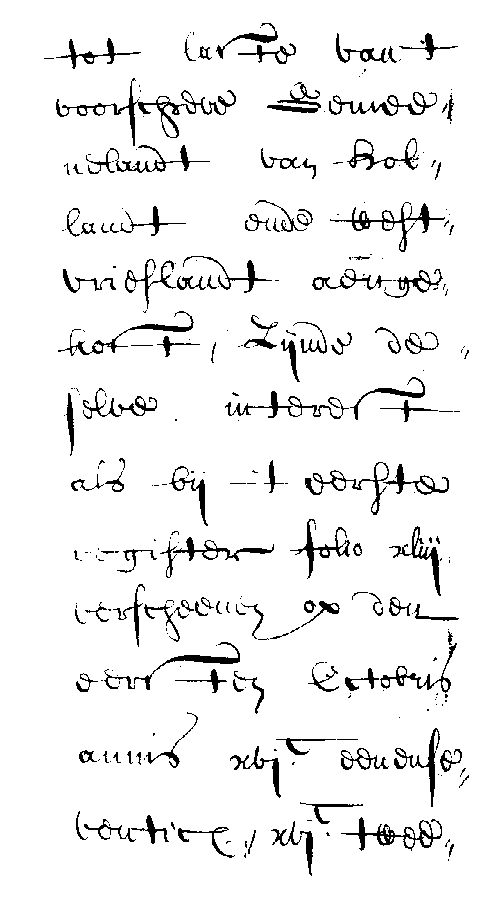 tot laste vant
voorschreve Gemee,,
nelandt van Hol,,
landt ende West,,
vrieslandt aenge
hort, Zijnde de,,
selve interest
als bij it eerste
register folio xliij
verscheenen op den
eersten Octobris
annis xvjc eenense,,
ventich, xvjc twee,,